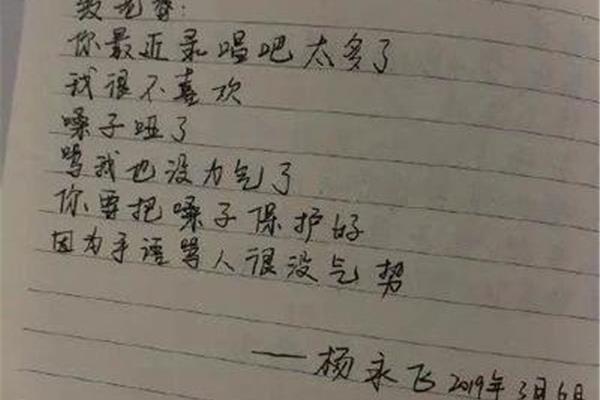 致老
你最近录唱吧太多了
我很不喜欢
嗓子哑了
骂我也没力气了
你要把嗓子保护好
因为手语骂人很没气势
——杨永飞 2019年3月6日